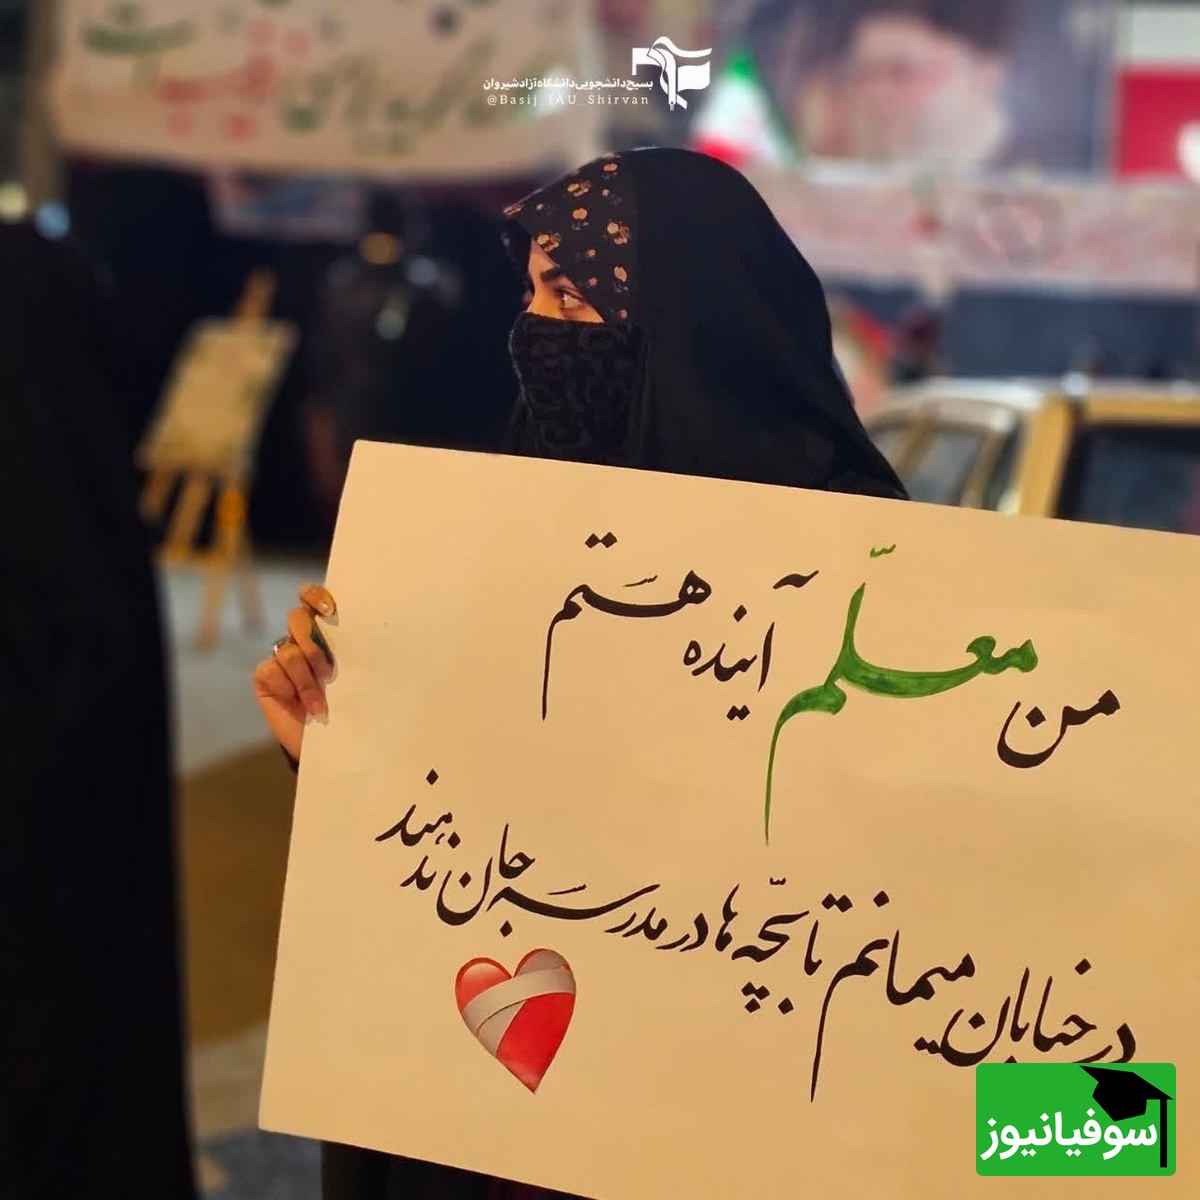 بسیج دانشجویی دانشگاه آزاد شیروان
@Basij_IAU_Shirvan
من معلّم آینده هستم
در خیابان میمانم تا بچّه ها در مدرسه جان ندهند
سوفیانیوز